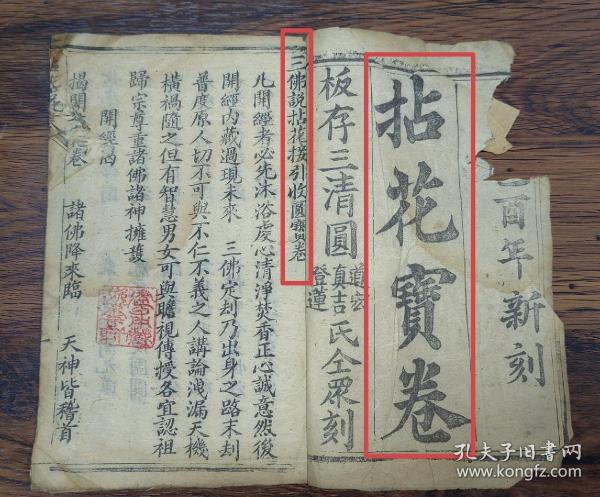 酉年新刻
拈花寶卷
板存三清圓
道宏
真吉
證蓮
氏仝眾刻
三佛說拈花接引收圓寶卷
凡開經者必先沐浴虔心清淨焚香正心誠意然後
開經內藏過現未來 三佛定刦乃出身之路末刦
普度原人切不可與不仁不義之人講論洩漏天機
橫禍隨之但有智慧男女可與瞻視傳授各宜認祖
歸宗尊重諸佛諸神擁護
開經偈
揭開 卷 諸佛降來臨 天神皆稽首
孔夫子旧书网
www.kongfz.com